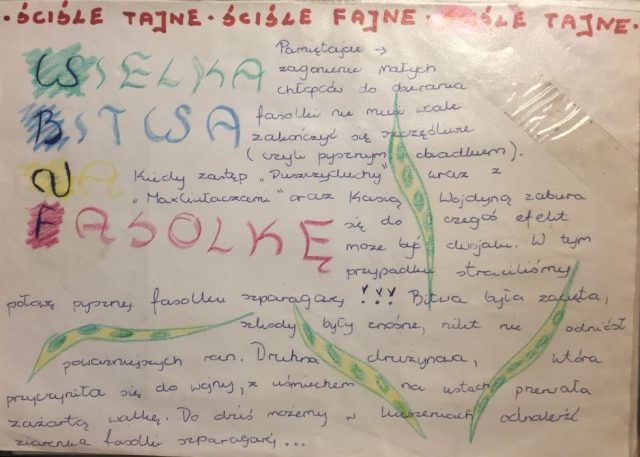 · ŚCIŚLE TAJNE · ŚCIŚLE FAJNE · ŚCIŚLE TAJNE ·
WIELKA
BITWA
NA
FASOLKĘ
Pamiętajcie →
zagonienie małych
chłopców do obierania
fasolki nie musi wcale
zakończyć się szczęśliwie
(czyli pysznym obiadkiem).
Kiedy zastęp „Duszczyduchy" wraz z
„Maxciułaczami" oraz Kasią Wojdyną zabiera
się do czegoś efekt
może być dwojaki. W tym
przypadku straciliśmy
połowę pysznej fasolki szparagowej !!! Bitwa była zacięta,
szkody były znośne, nikt nie odniósł
poważniejszych ran. Druhna drużynowa, która
przyczyniła się do wojny, z uśmiechem na ustach przerwała
zażartą walkę. Do dziś możemy w kieszeniach odnaleźć
ziarenka fasolki szparagowej ...